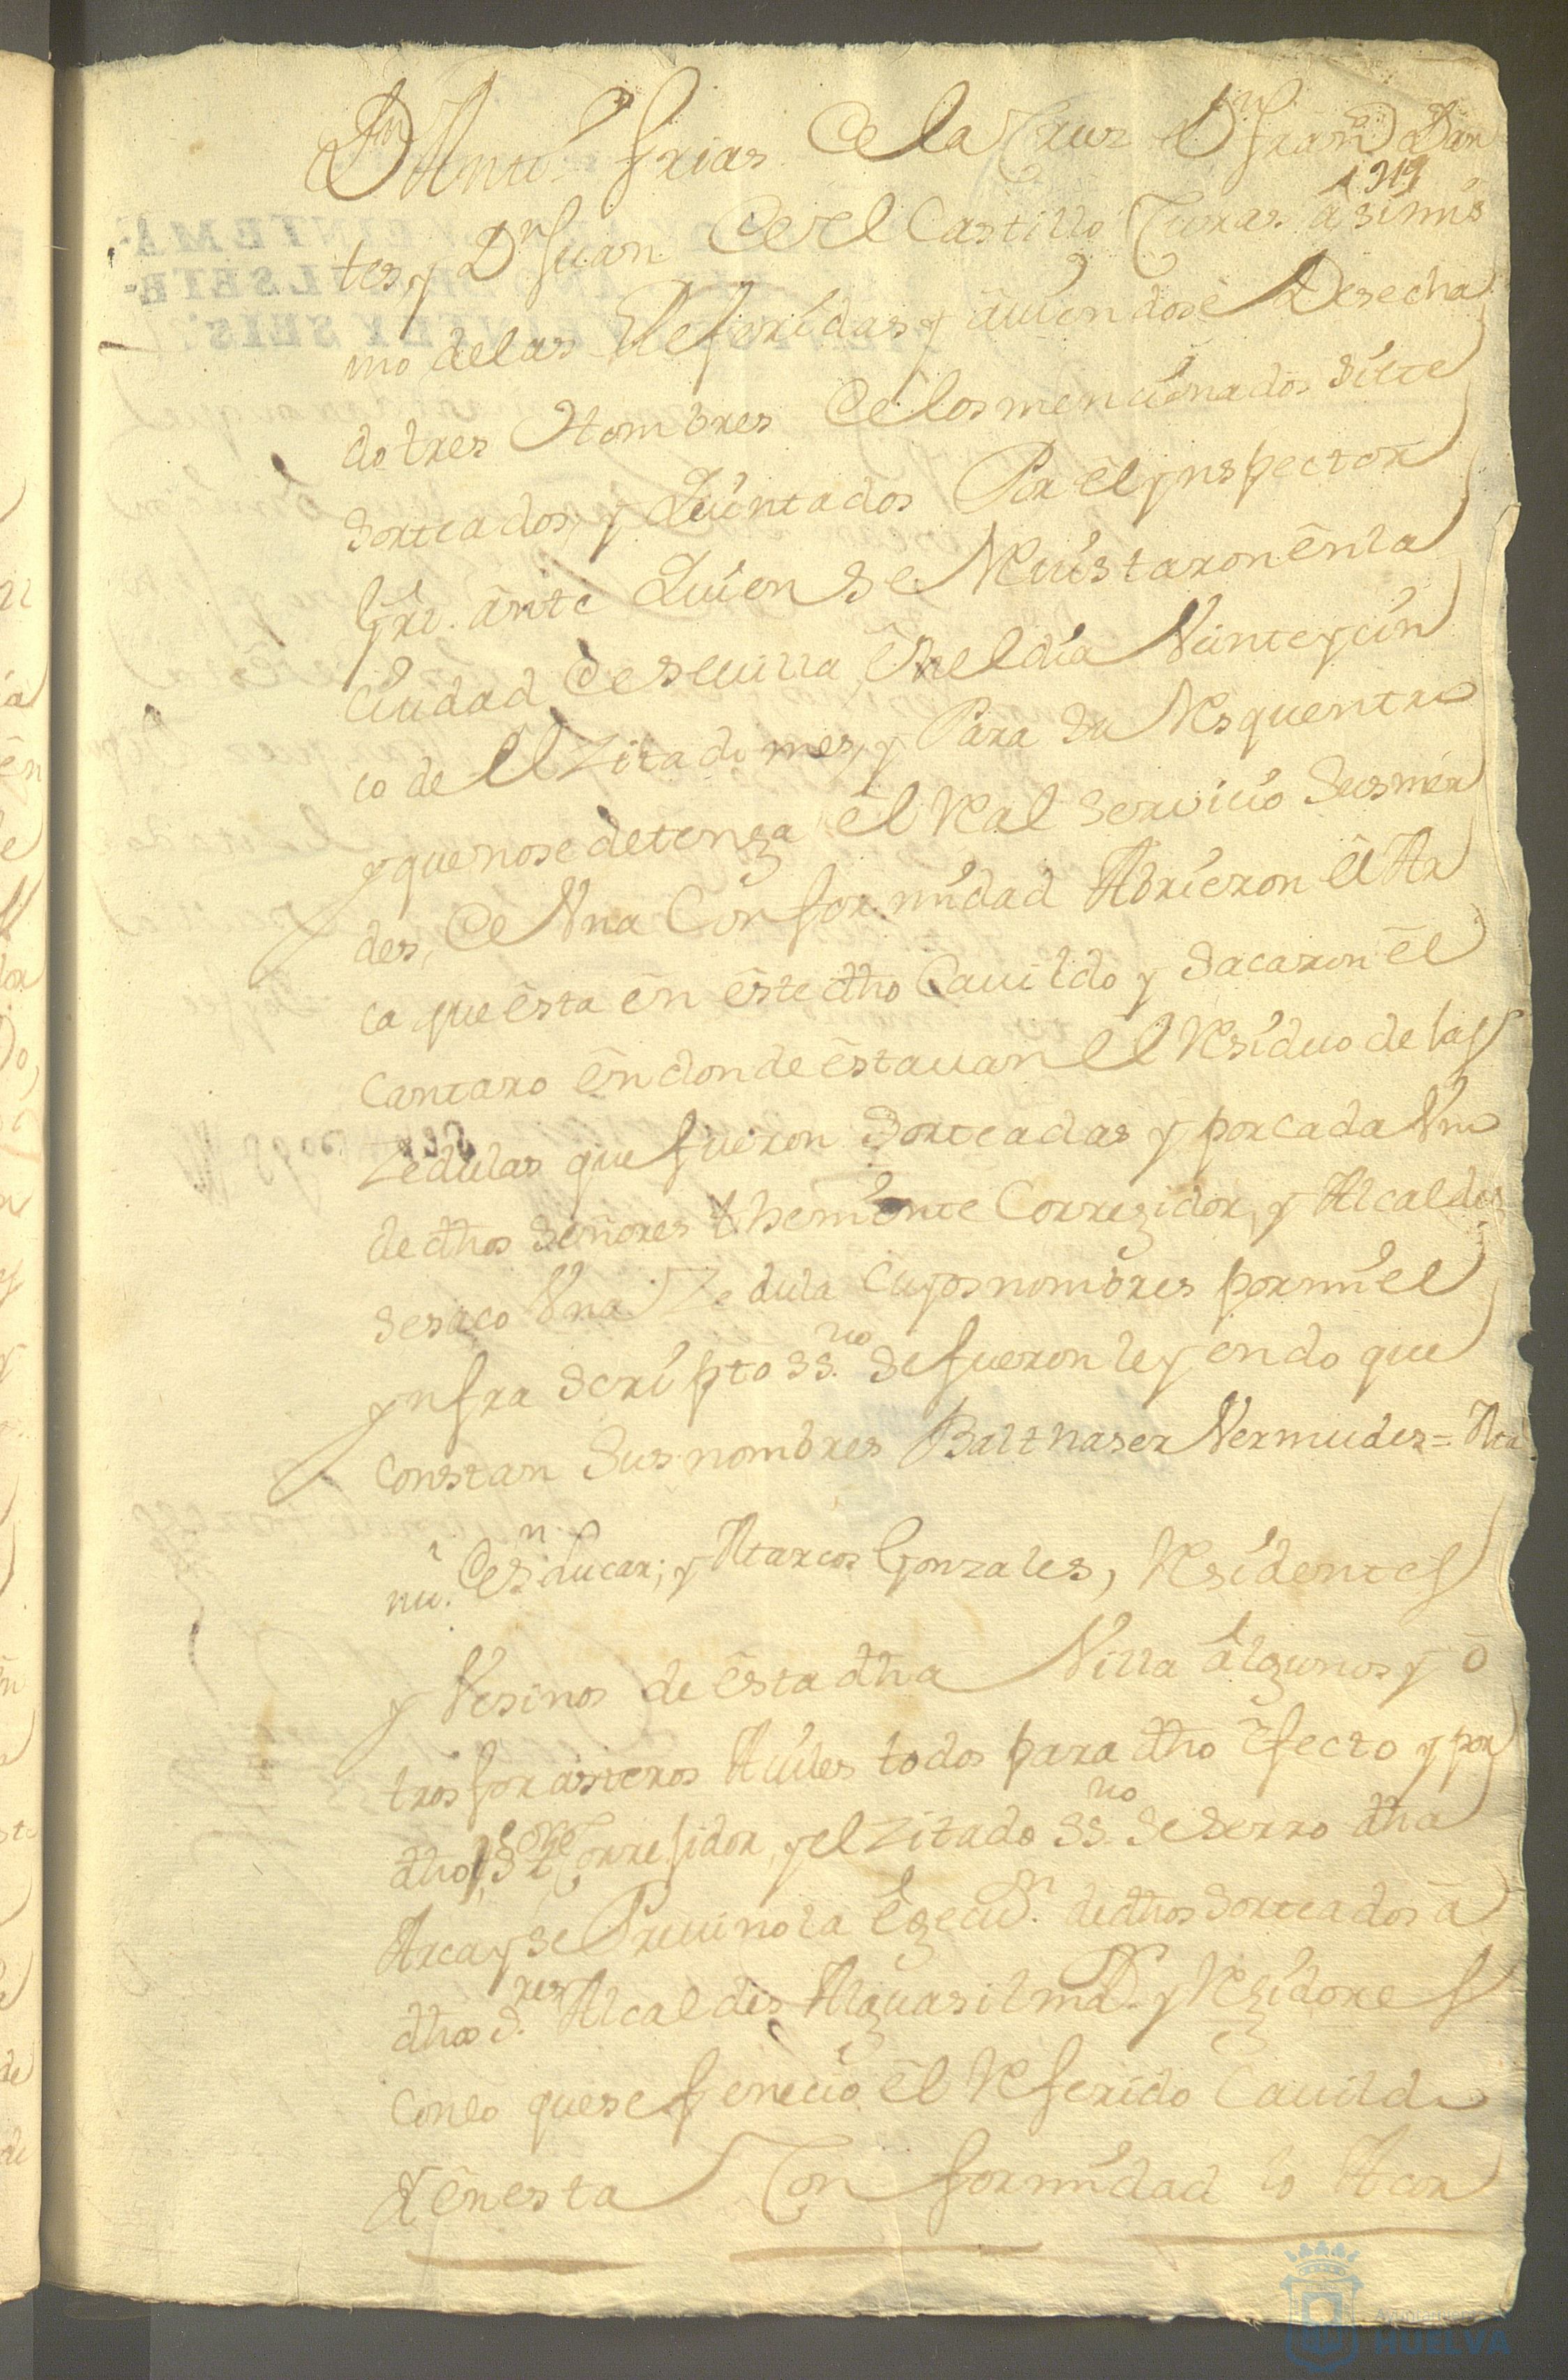 Dn Anto. frias De la Cruz Dn franco Dan
1319
tes, y Dn Juan Del Castillo Curas asimis
mo de las Referidas y auiendose Desecha
do tres Hombres De los mencionados siete
sorteados, y Quintados Por el ynspector
Gral. ante Quien se Reuistaron en la
Ciudad De Seuilla, en el dia Veinte y cin
co de el Zitado mes, y Para su
y que no se detenga el Real Seruicio Sus mer
des, De Vna Conformidad Abrieron el Ar
ca que esta en este dho Cauildo y Sacaron el
Cantaro en donde estauan el Residuo de las
Zedulas que fueron Sorteadas y por cada Vno
de dhos Señores theniente Corregidor, y Alcaldes
se saco Vna Zedula Cuyos nombres por mi el
ynfra scripto ss.no se fueron leyendo que
Constan Sus nombres Balthaser Vermudes = Ma
nu. De Sn lucar; y Marcos Gonzales, Residentes
y Vesinos de esta dha Villa algunos y o
tros forasteros Auiles todos para dho efecto y por
dho Sor the Corregidor, y el Zitado ss.no se serro dha
Arca y se Preuino la Egecuon. de dhos Sorteados a
dhos S.res Alcaldes Alguasil mor. y Regidores
Con lo que se fenecio el Referido Cauildo
Y en esta Conformidad lo Acor
AYUNTAMIENTO DE
HUELVA